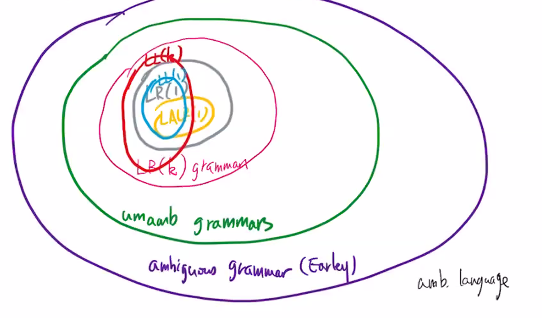 LL(k)
LL(1)
LR(1)
LAL(1)
LR(k) grammar
umamb grammars
ambiguous grammar (Earley)
amb. language